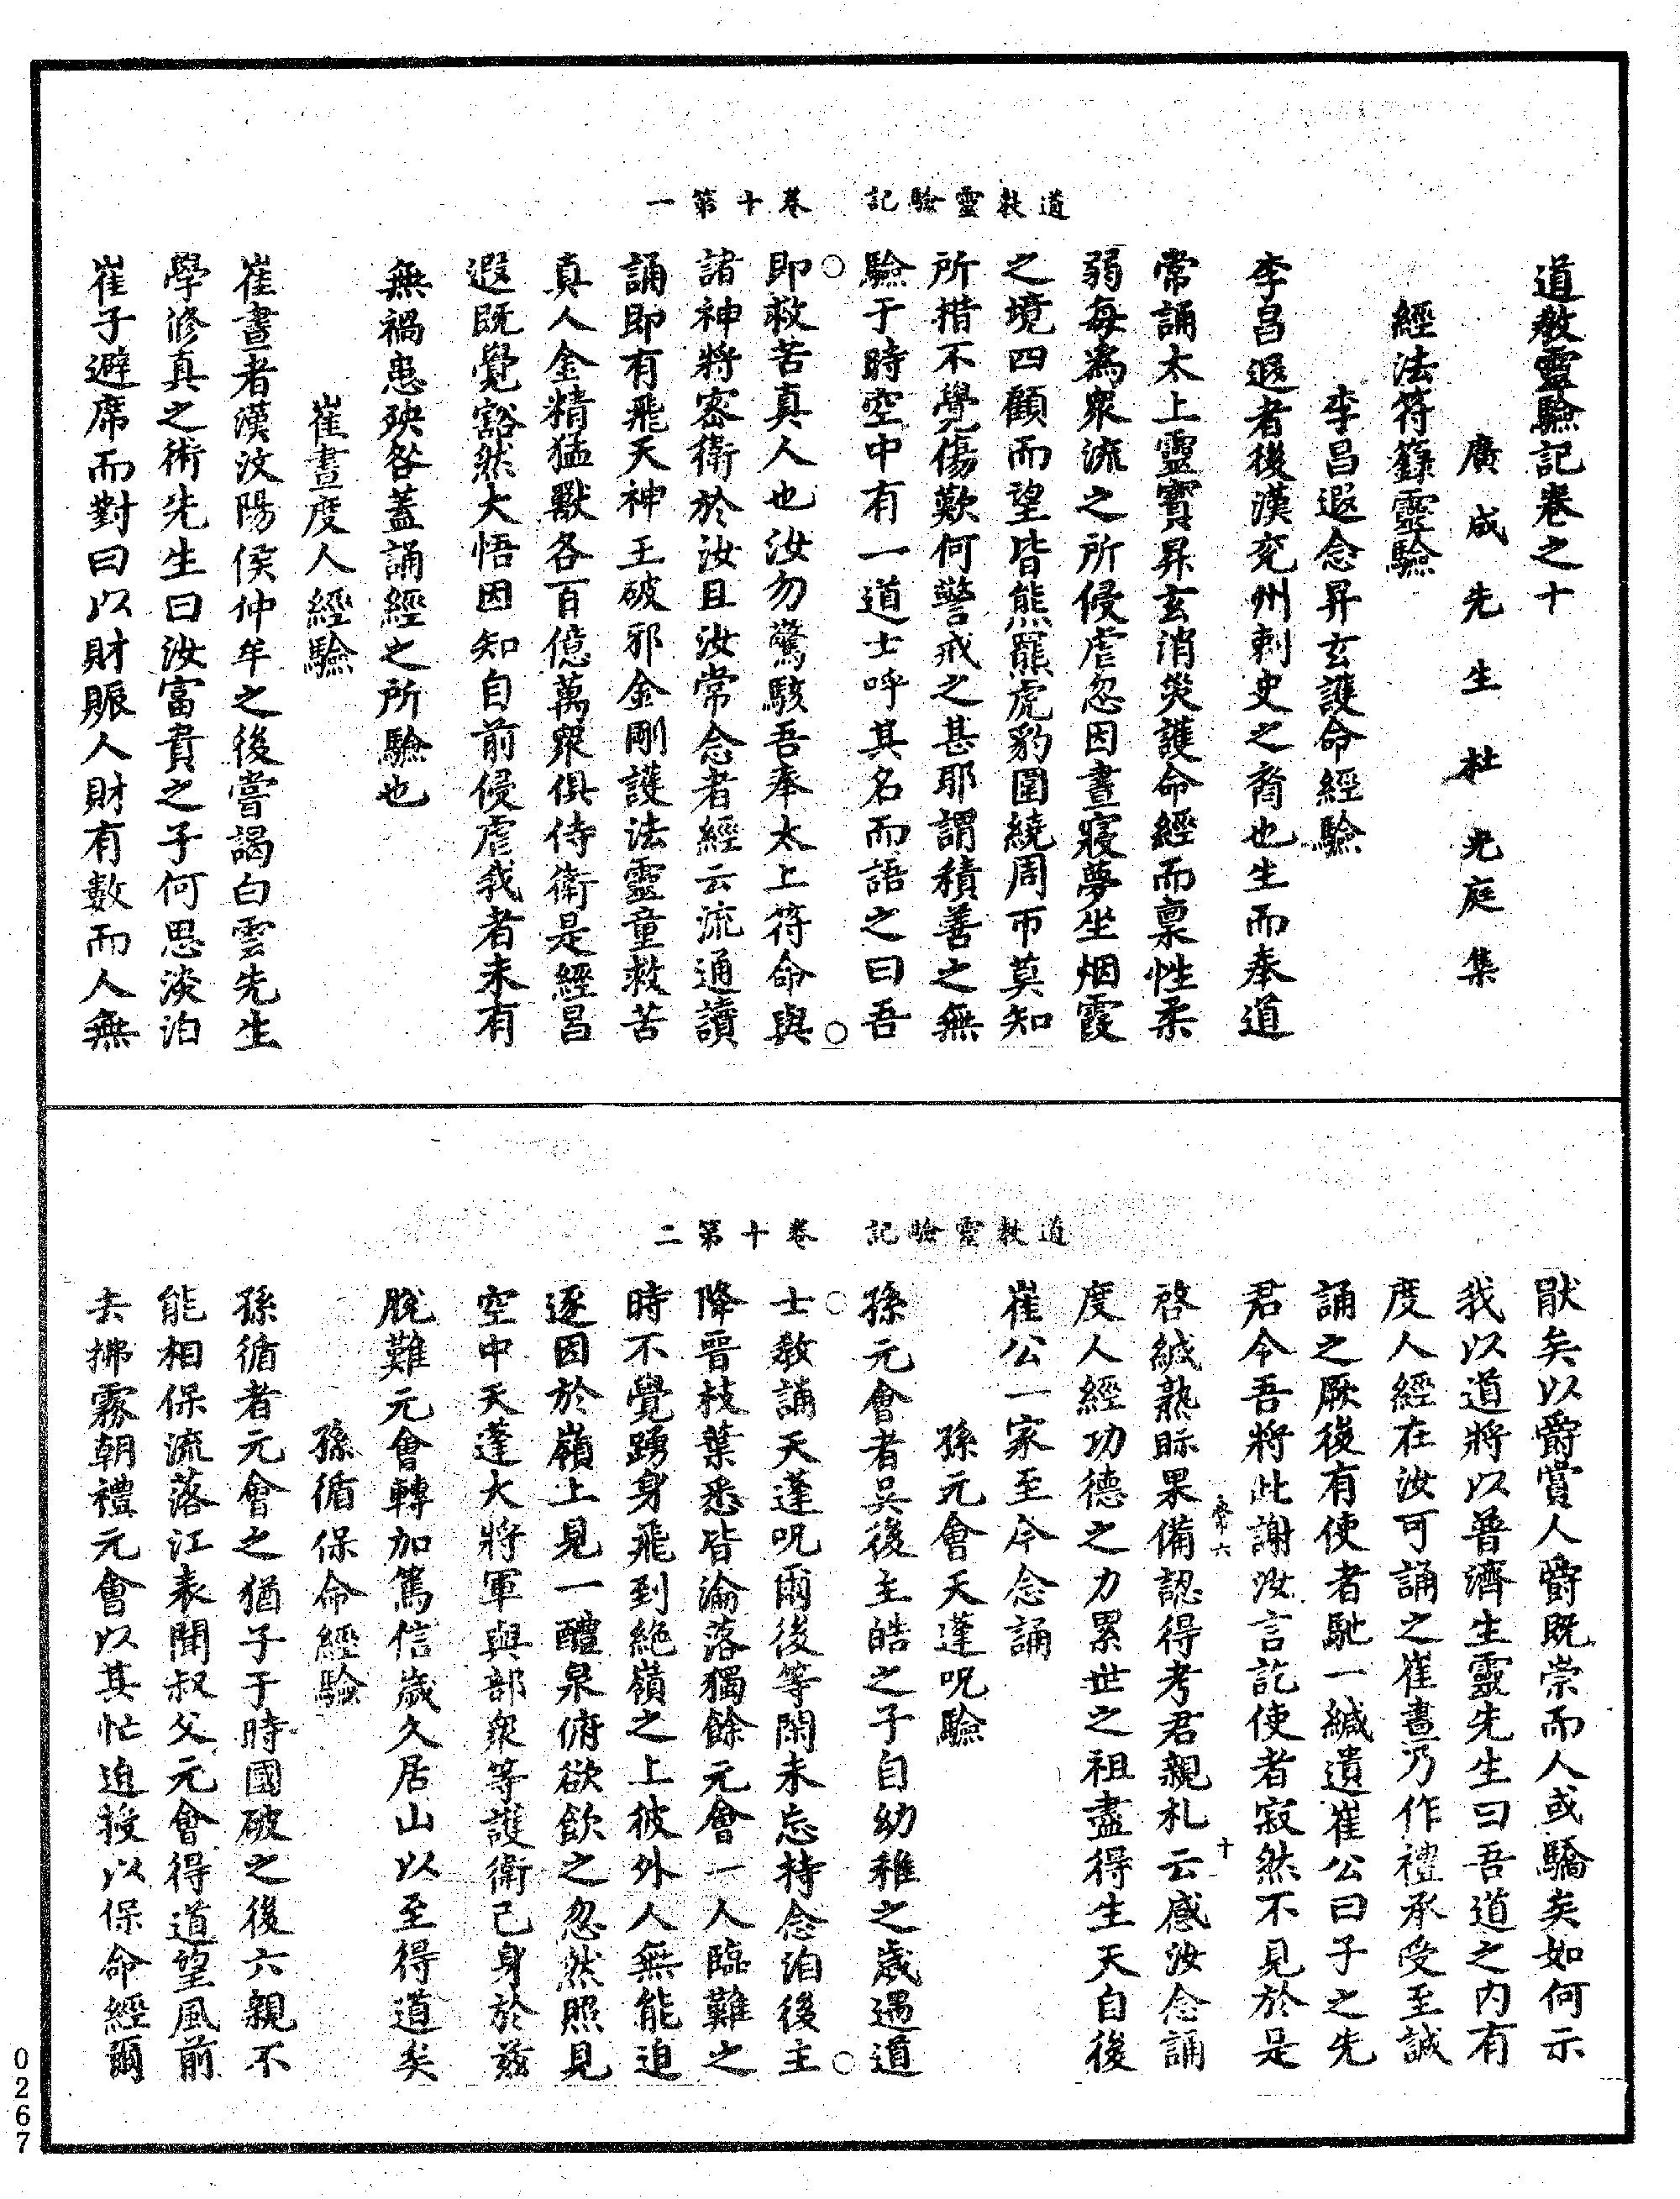 道教靈驗記　卷十第一
道教靈驗記卷之十
廣成先生杜光庭集
經法符籙靈驗
李昌遐念昇玄護命經驗
李昌遐者後漢兖州刺史之裔也生而奉道
常誦太上靈寶昇玄消災護命經而稟性柔
弱每為衆流之所侵虐忽因晝寢夢坐烟霞
之境四顧而望皆熊羆虎豹圍繞周帀莫知
所措不覺傷歎何警戒之甚耶謂積善之無
驗于時空中有一道士呼其名而語之曰吾
即救苦真人也汝勿驚駭吾奉太上符命與
諸神將密衛於汝且汝常念者經云流通讀
誦即有飛天神王破邪金剛護法靈童救苦
真人金精猛獸各百億萬衆俱侍衛是經昌
遐既覺豁然大悟因知自前侵虐我者未有
無禍患殃咎蓋誦經之所驗也
崔晝度人經驗
崔晝者漢汶陽侯仲牟之後嘗謁白雲先生
學修真之術先生曰汝富貴之子何思淡泊
崔子避席而對曰以財賑人財有數而人無
道教靈驗記　卷十第二
猒矣以爵賞人爵既崇而人或驕矣如何示
我以道將以普濟生靈先生曰吾道之内有
度人經在汝可誦之崔晝乃作禮承受至誠
誦之厥後有使者馳一緘遺崔公曰子之先
君今吾將此謝汝言訖使者寂然不見於是
啓緘熟眎果備認得考君親札云感汝念誦
度人經功德之力累世之祖盡得生天自後
崔公一家至今念誦
孫元會天蓬呪驗
孫元會者吳後主皓之子自幼稚之歲遇道
士教誦天蓬呪爾後等閑未忘持念洎後主
降晉枝葉悉皆淪落獨餘元會一人臨難之
時不覺踴身飛到絶嶺之上彼外人無能追
逐因於嶺上見一醴泉俯欲飲之忽然照見
空中天蓬大將軍與部衆等護衛己身於茲
脫難元會轉加篤信歲久居山以至得道矣
孫循保命經驗
孫循者元會之猶子于時國破之後六親不
能相保流落江表聞叔父元會得道望風前
去拂霧朝禮元會以其忙迫授以保命經爾
0267